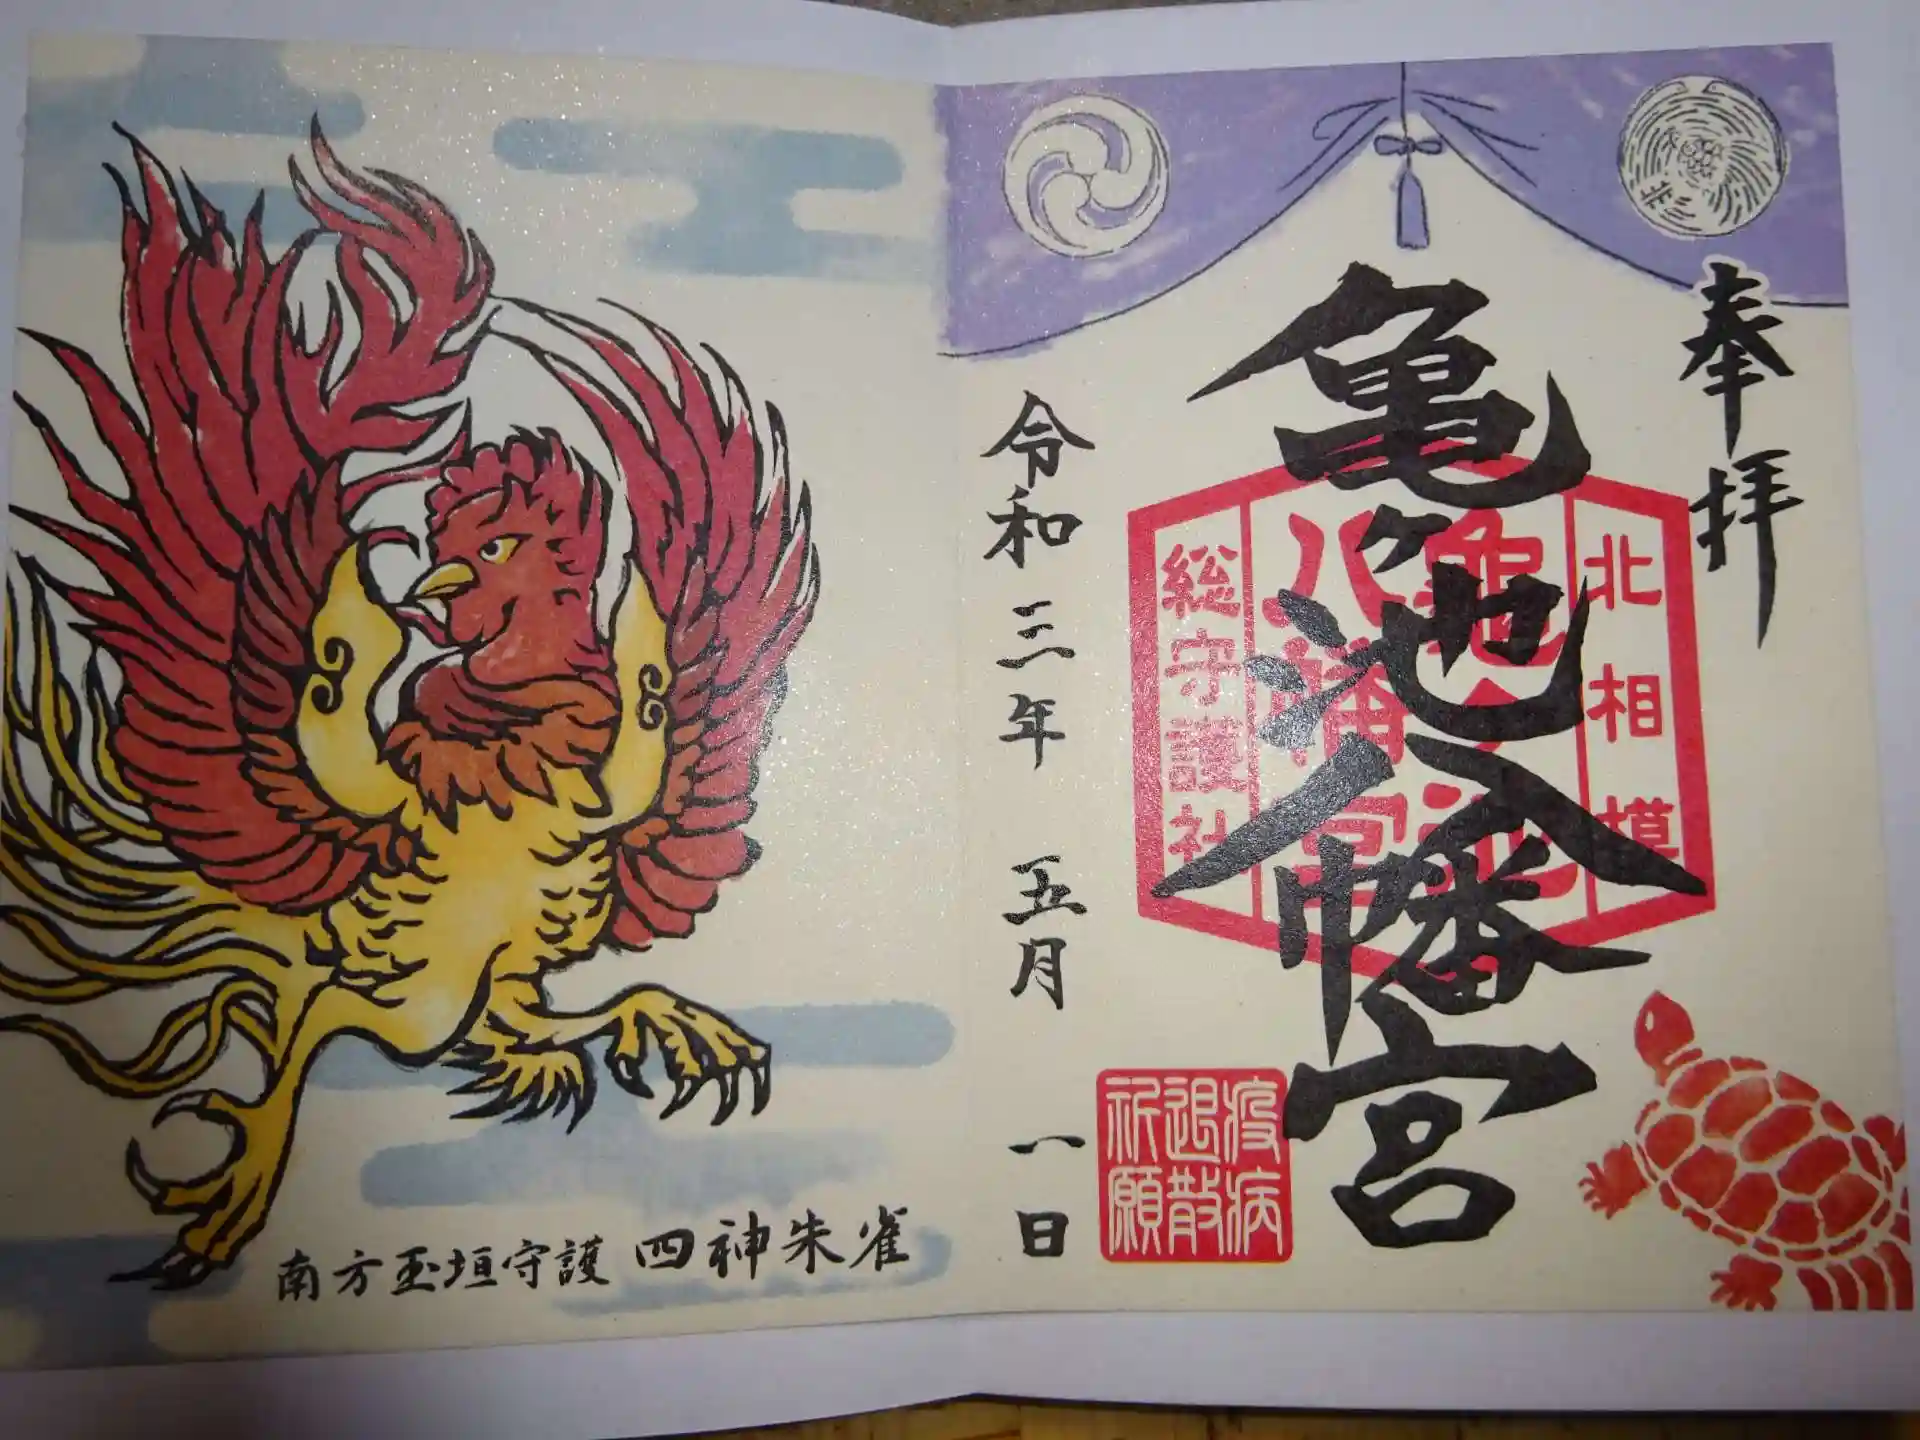 奉拝
亀ヶ池八幡宮
北相模
亀ヶ池
八幡宮
総守護社
疫病
退散
祈願
令和三年 五月 一日
南方玉垣守護 四神朱雀